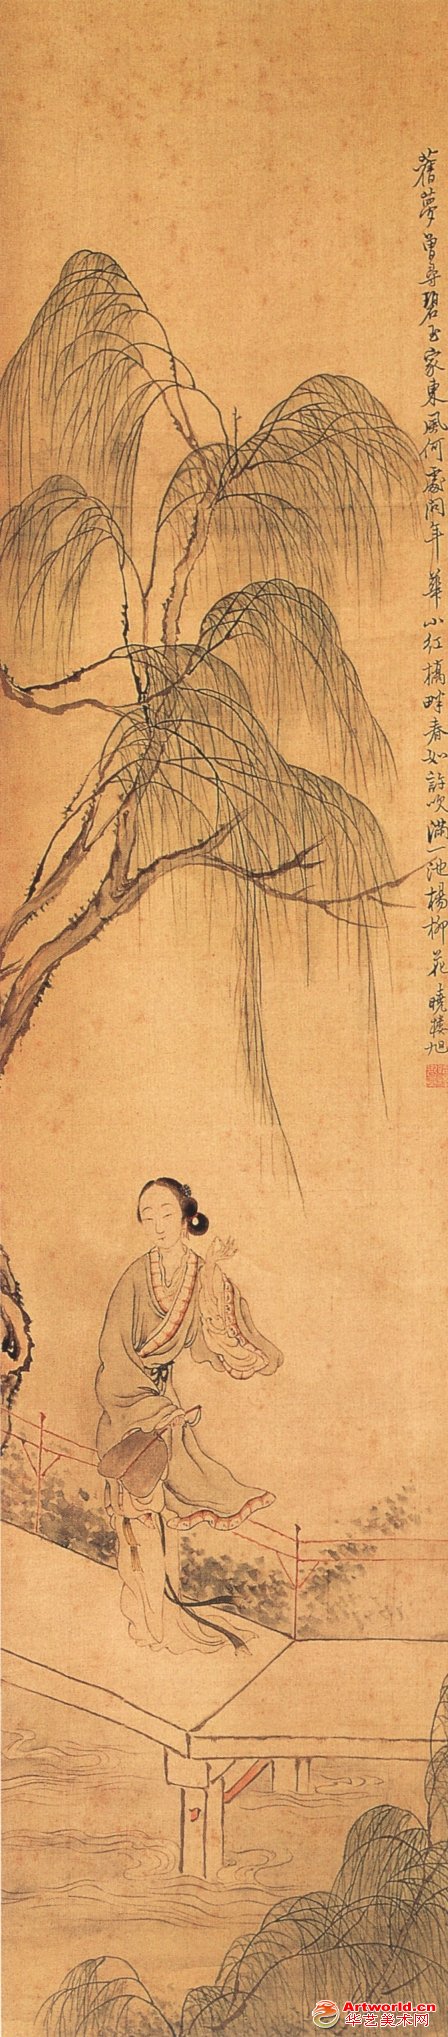 舊夢曾尋碧玉家東風何處問年華小紅橋畔春如許吹滿一池楊柳花 曉樓旭
Artworld.cn
华艺美术网